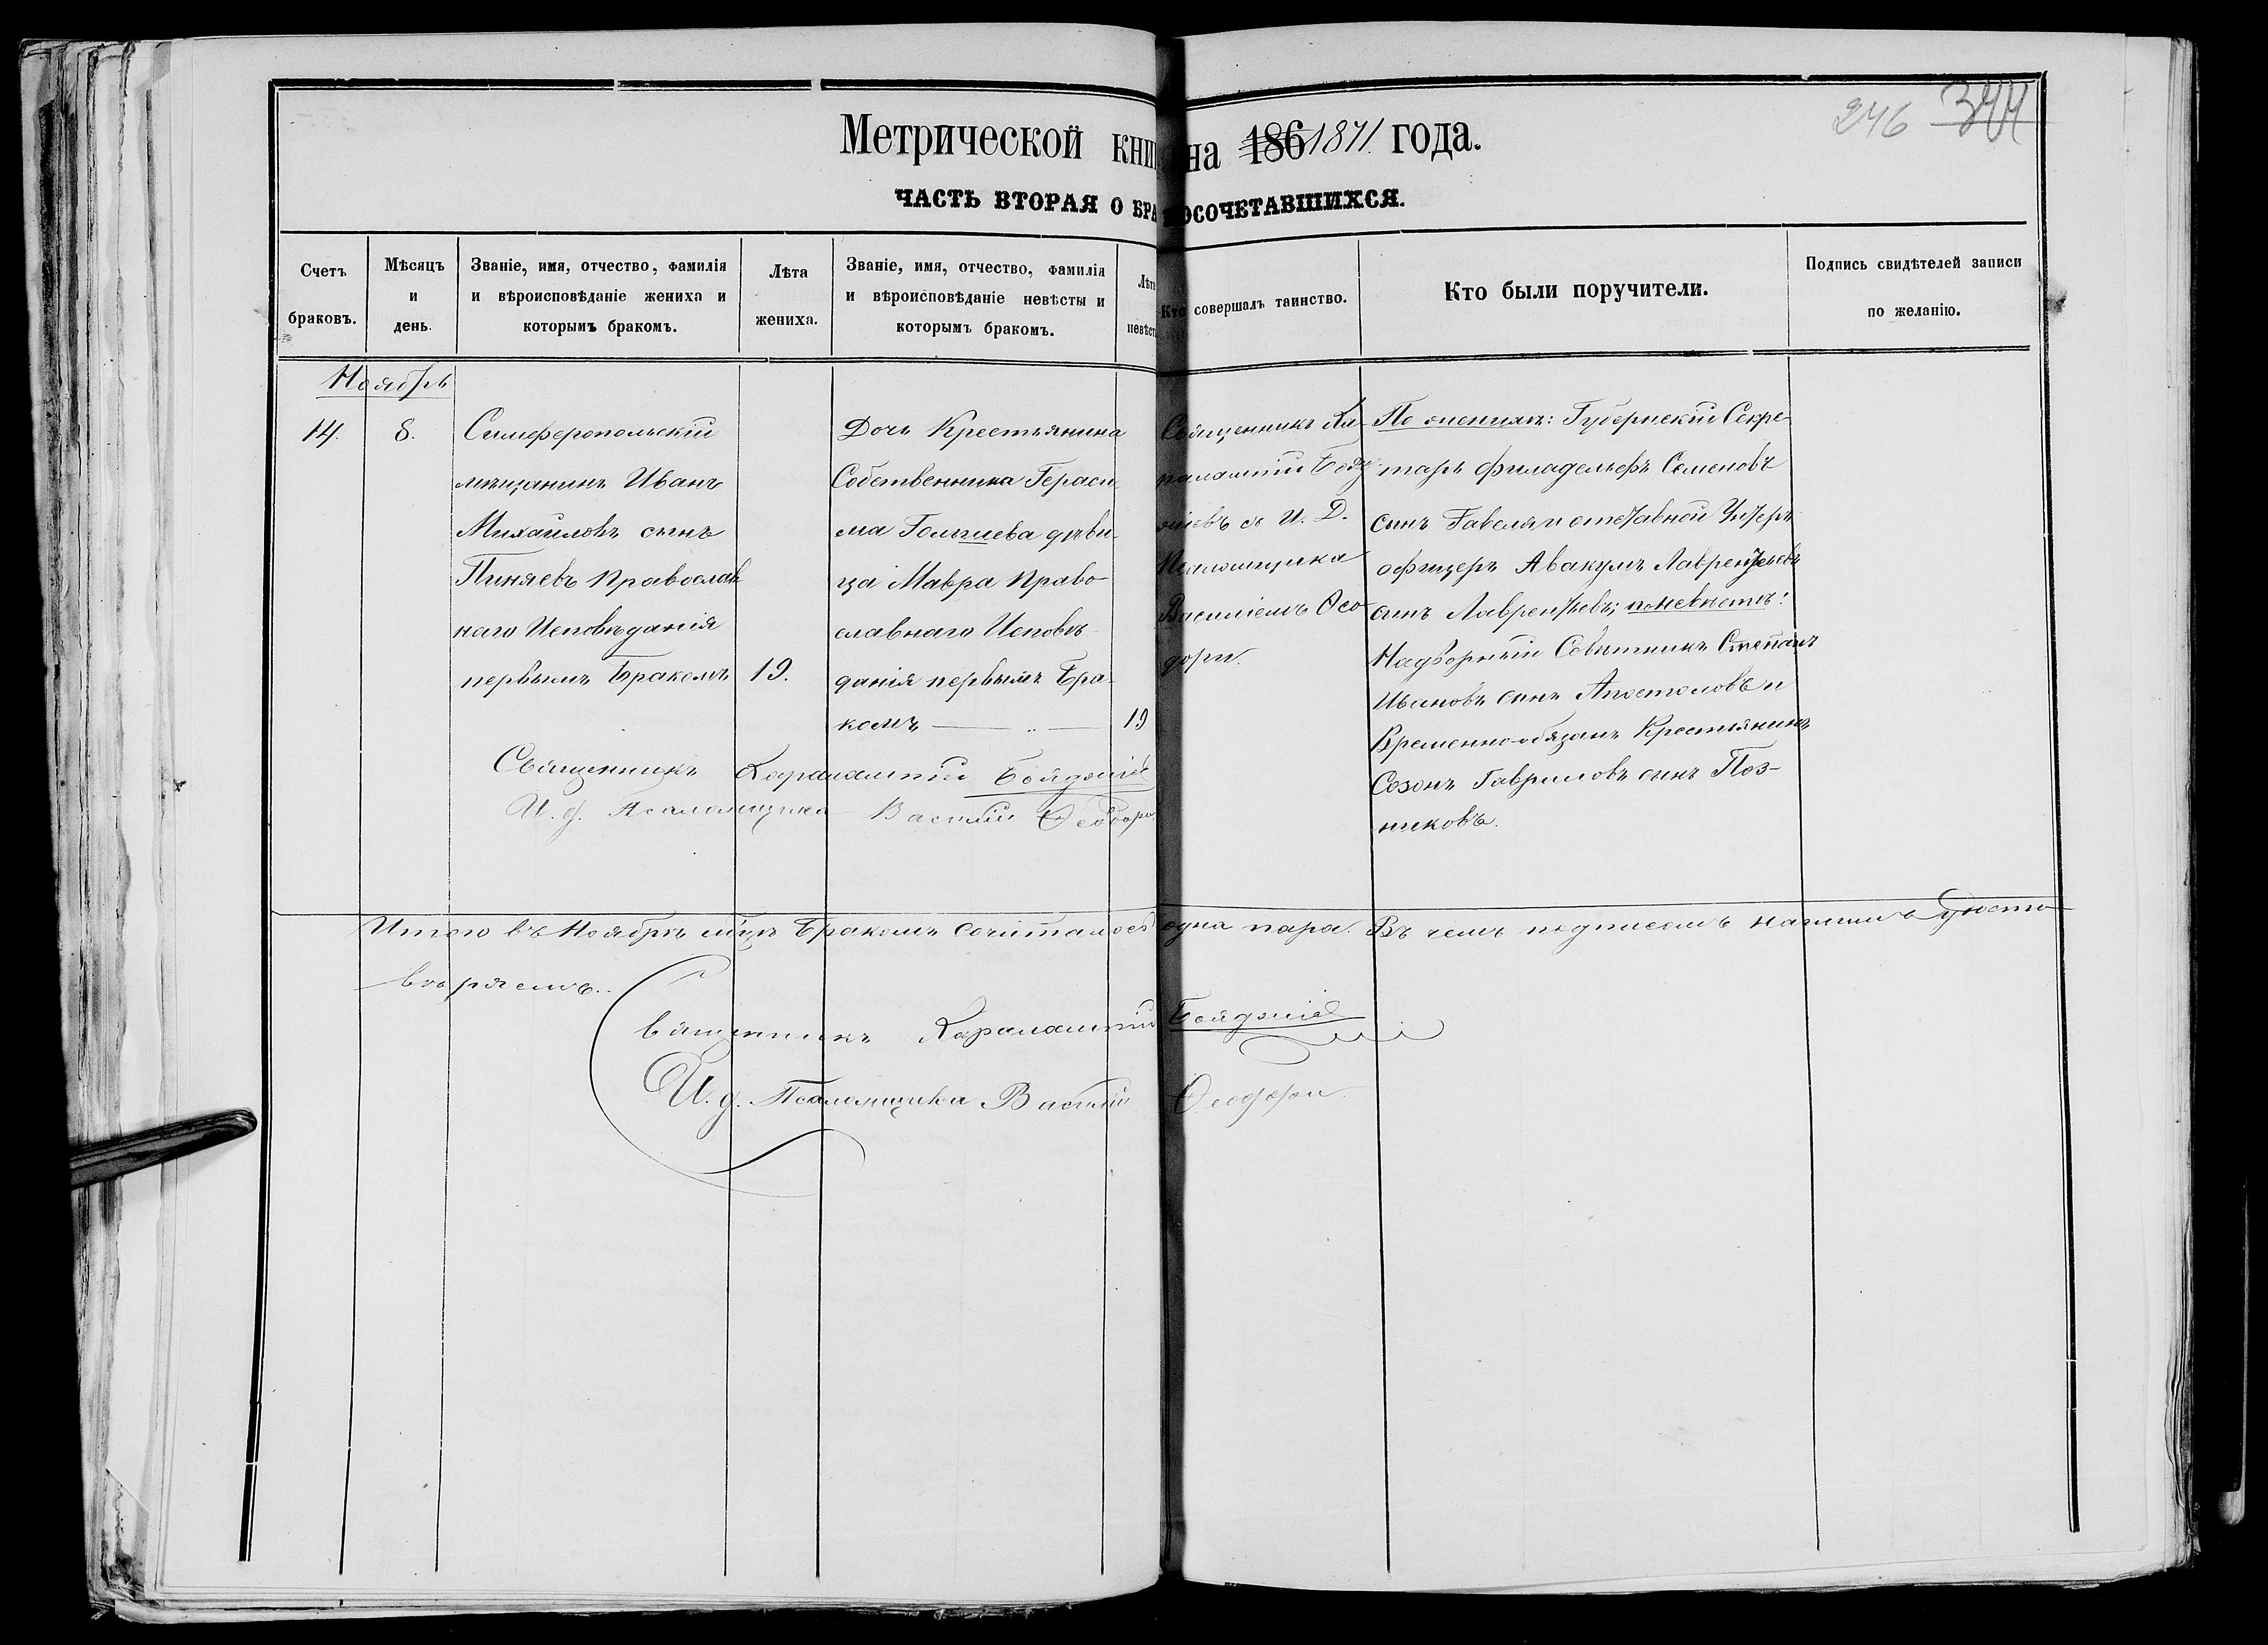 246 344
Метрической кни на 186 1871. года.
ЧАСТЬ ВТОРАЯ О БРА КОСОЧЕТАВШИХСЯ.
Счетъ
браковъ.
Мѣсяцъ
и
день.
Званіе, имя, отчество, фамилія
и вѣроисповѣданіе жениха и
которымъ бракомъ.
Лѣта
жениха.
Званіе, имя, отчество, фамилія
и вѣроисповѣданіе невѣсты и
которымъ бракомъ.
Лѣта
невѣст
Кто совершалъ таинство.
Кто были поручители.
Подпись свидѣтелей записи
по желанію.
Ноябрь
14.
8.
Симферопольскій
мѣщанинъ Иванъ
Михайловъ сынъ
Пиняевъ Православ
наго Исповѣданія
первымъ Бракомъ
19.
Дочь Крестьянина
Собственника Гераси
ма дѣви-
ца Мавра Право-
славнаго Исповѣ-
данія первымъ Бра-
комъ
19
Священникъ Ха-
и. Д.
Псаломщика
Василіемъ Ѳео
дори.
По женихѣ: Губернскій Секре
тарь Филадельфъ Семеновъ
сынъ Гавеля и отставной Унтеръ
офицеръ Авакумъ Лаврентьевъ
сынъ Лаврентьевъ; по невѣстѣ:
Надворный Совѣтникъ Степанъ
Ивановъ сынъ Апостоловъ и
Временно-обязан. Крестьянинъ
Созонъ Гавриловъ сынъ Поз-
никовъ.
Священникъ Харалампій Бояджіев
И. д. Псаломщика Василій Ѳеодори
Итого въ Ноябрѣ мцѣ Бракомъ сочиталось одна пара. Въ чемъ подписомъ нашимъ удосто-
вѣряемъ.
Священникъ Харалампій Бояджіев
И. д. Псаломщика Василій Ѳеодори.